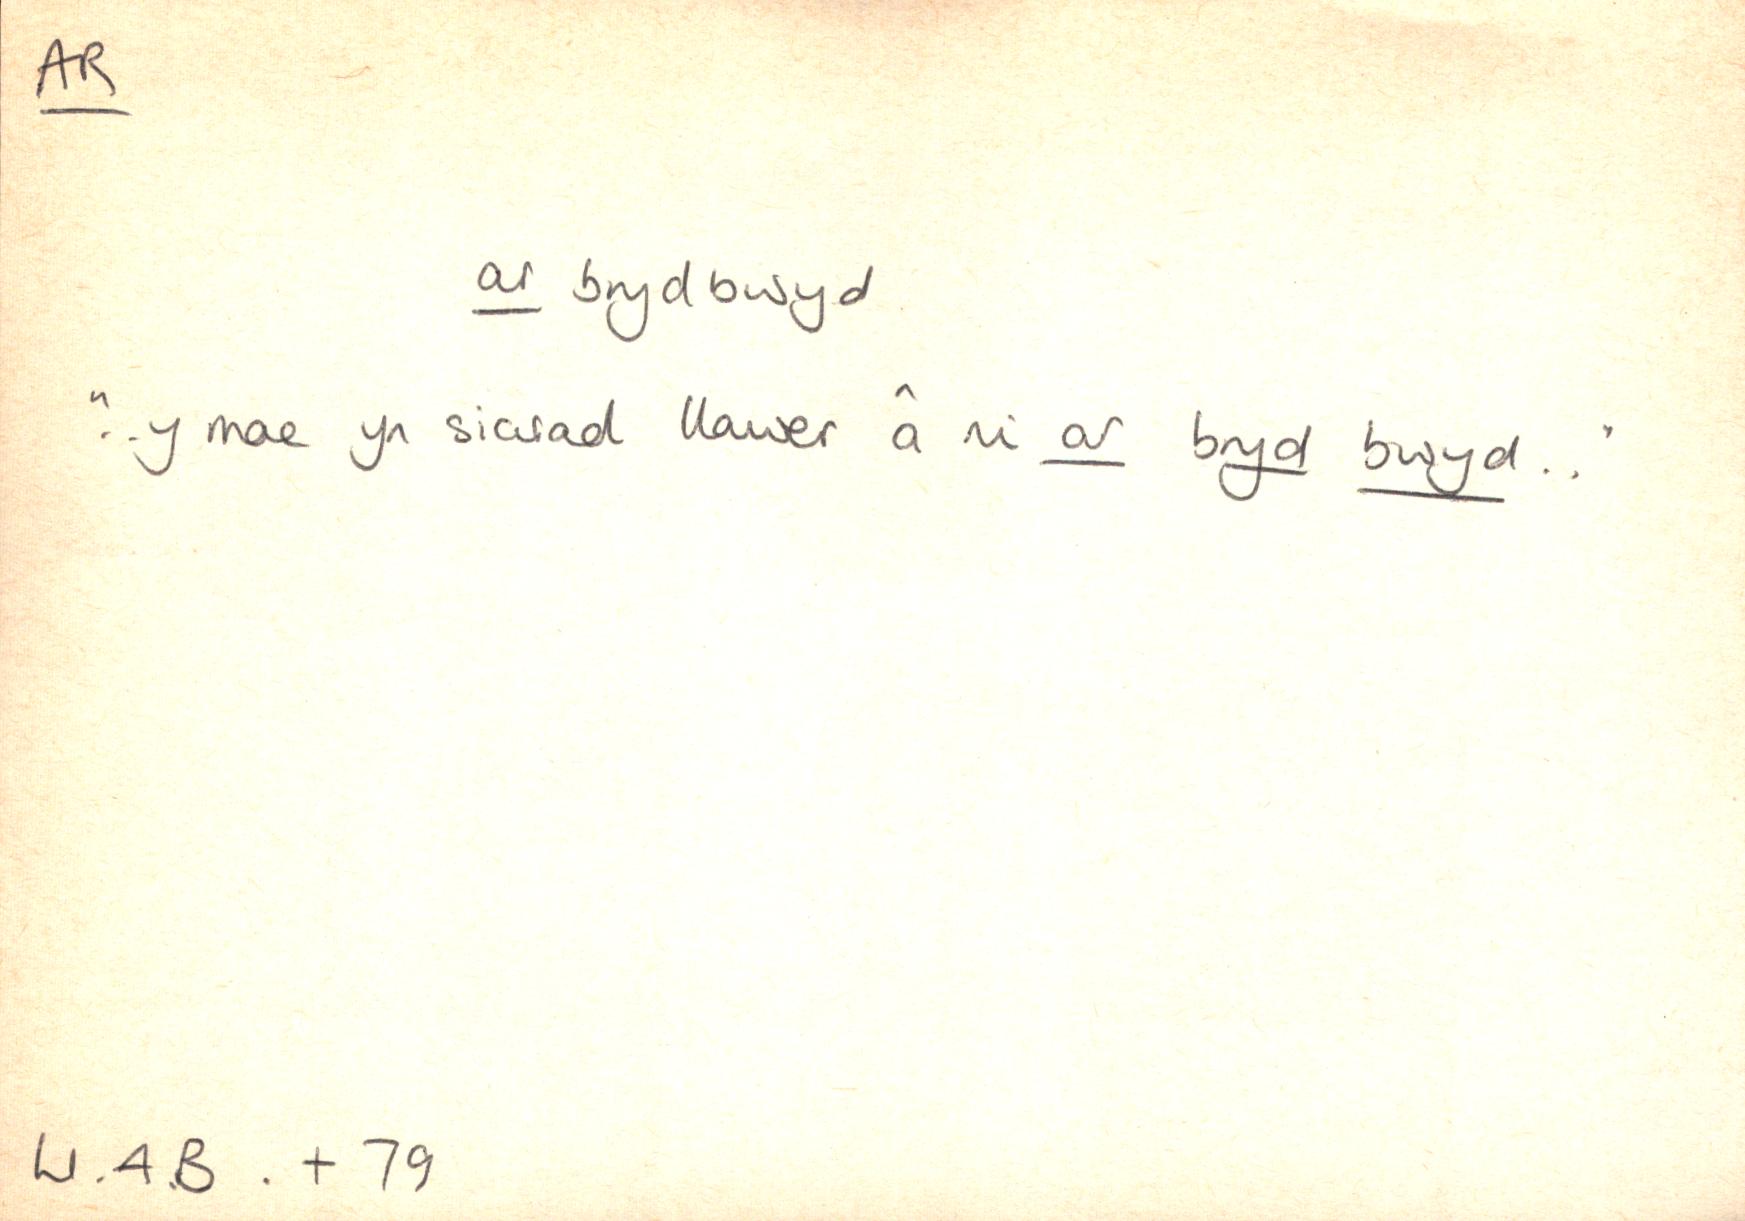 AR
ar bryd bwyd
"..y mae yn siarad llawer â ni ar bryd bwyd.."
W.A.B. + 79